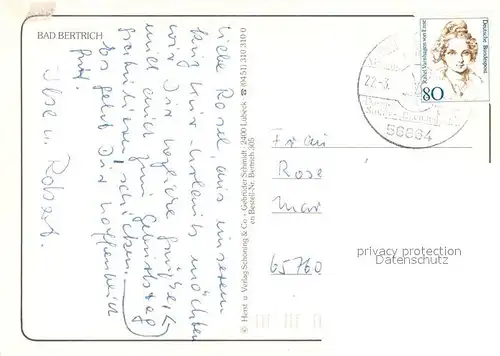 BAD BERTRICH
Liebe Rosel, aus unserem
Kur-Urlaub möchten
wir Dir herzliche Grüße
und auch zum Geburtstag
schicken.
Es geht Dir hoffentlich
gut!
Ilse u. Robert.
© Herst. u. Verlag Schöning & Co - Gebrüder Schmidt, 2400 Lübeck ☎ (0451) 310 310 0
en Bestell-Nr. Bertrich 305
Deutsche Bundespost
80
22.-3.
56864
Frau
Rose
Mar
65760
privacy protection
Datenschutz